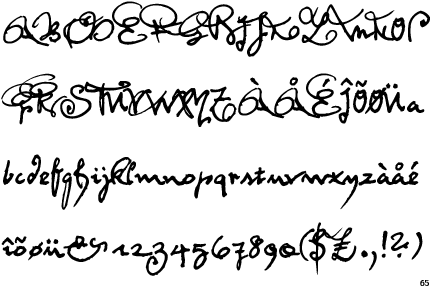 ABCDEFGHIJKLMNOP
QRSTUVWXYZÀÅÉÎÕØÜa
bcdefghijklmnopqrstuvwxyzàåé
îõøü&1234567890($£.,!?)
65